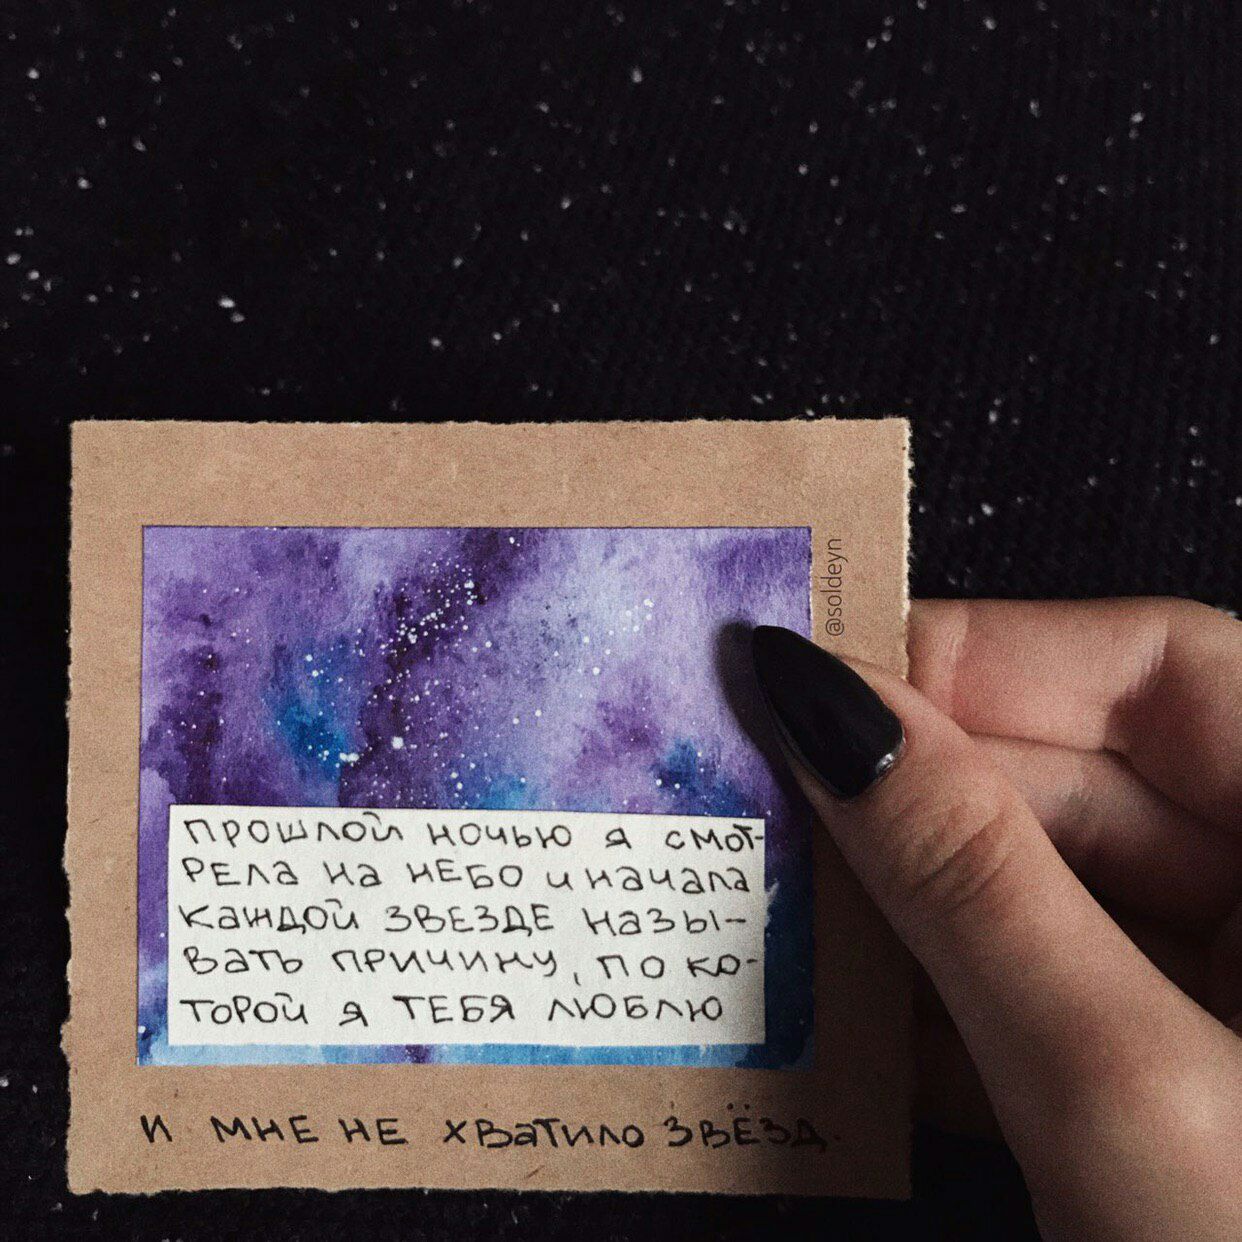 @soldeyn
прошлой ночью я смот-
рела на небо и начала
каждой звезде назы-
вать причину, по ко-
торой я тебя люблю
и мне не хватило звёзд.